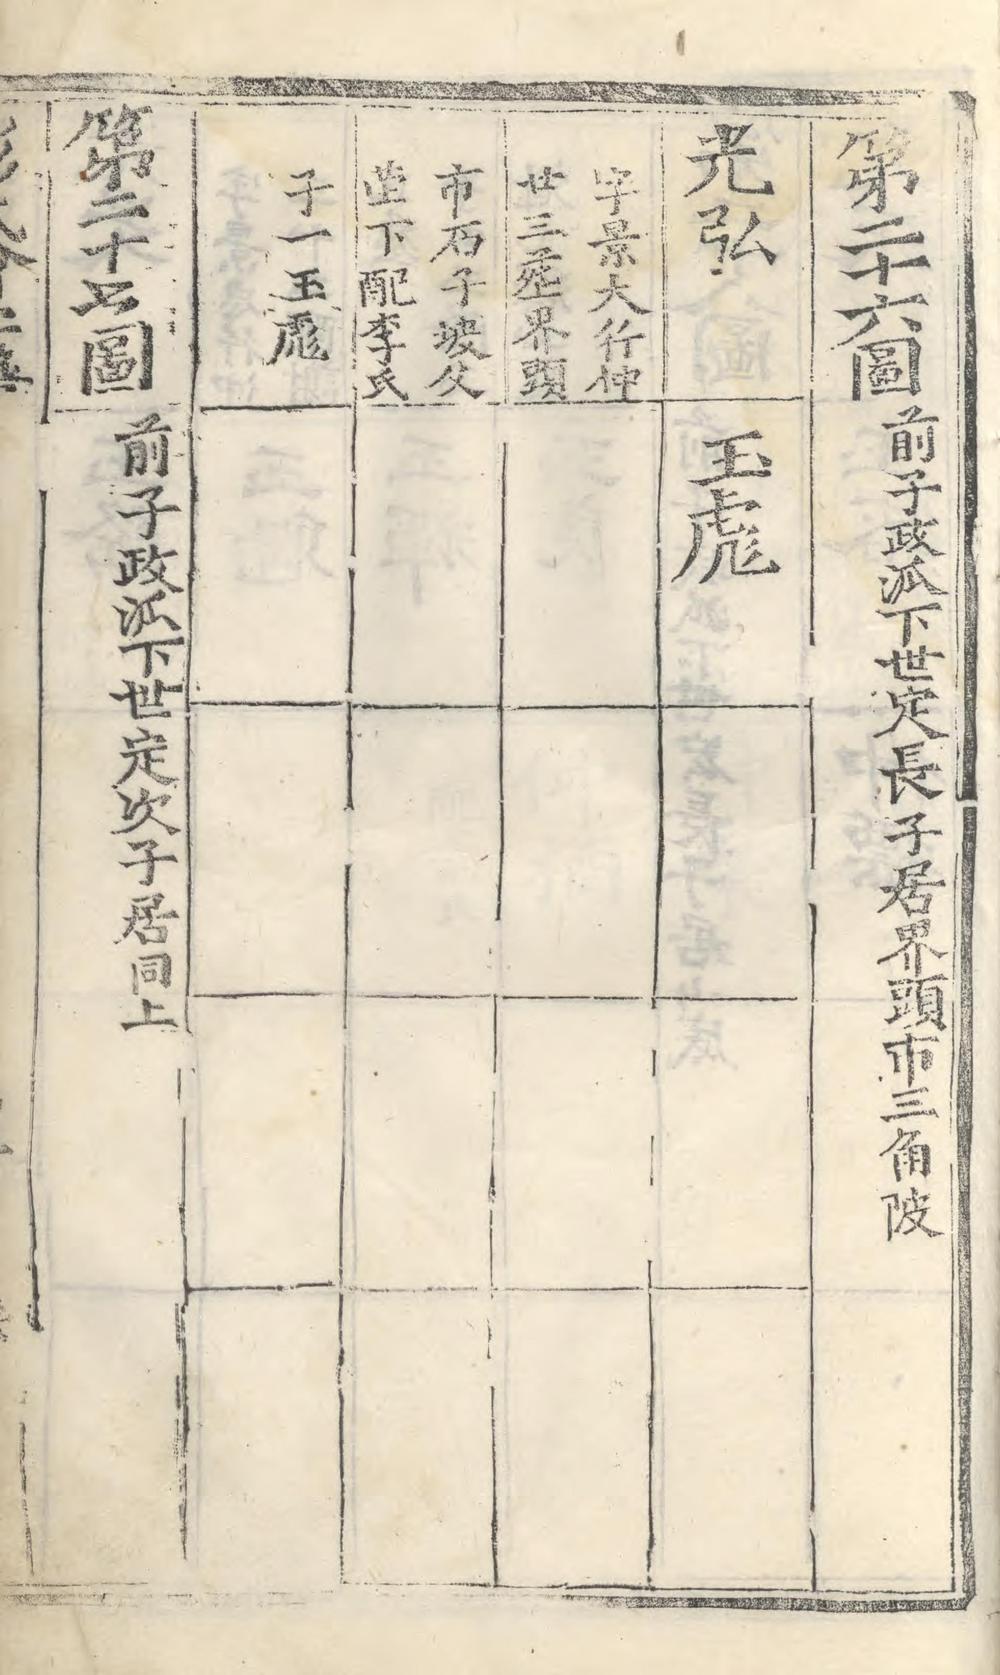 第二十六圖 前子政派下世定長子居界頭市三角陂
光弘
字景大行仲
廿三歿界頭
市石子坡父
茔下配李氏
子一玉彪
玉彪
第二十七圖 前子政派下世定次子居同上